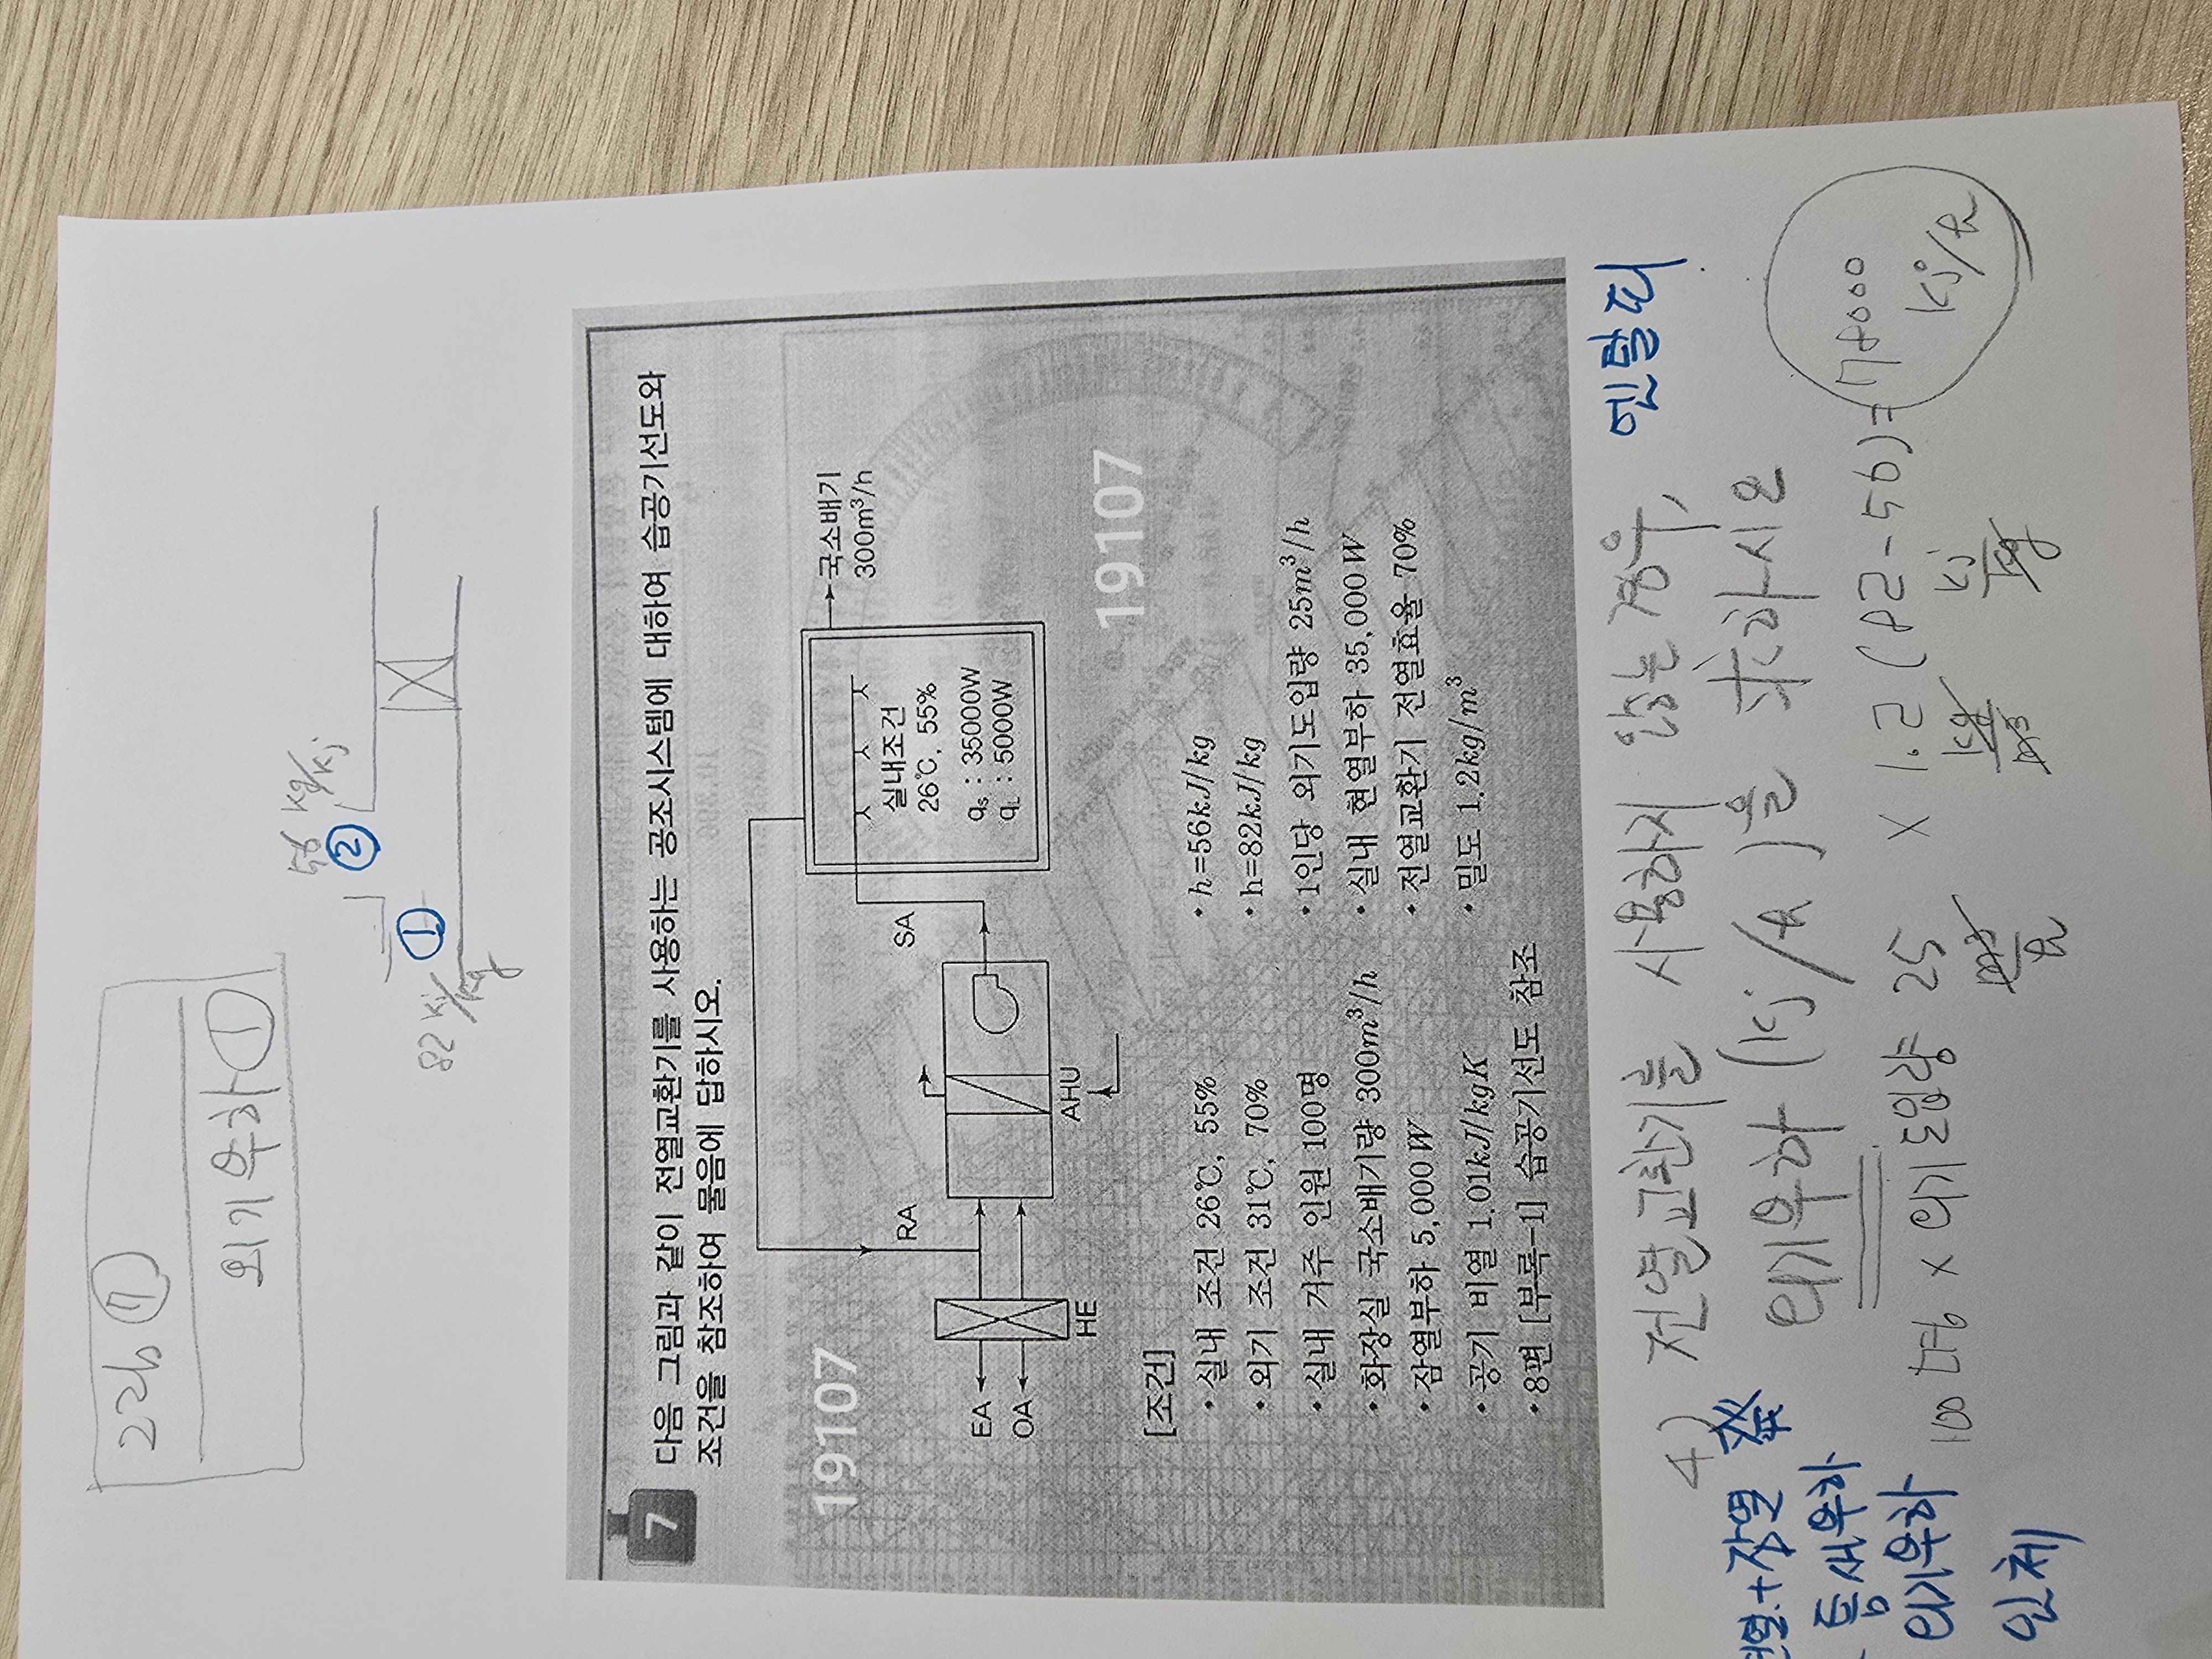 22년 ⑦
외기부하 ①
56 kg/kj
②
①
82 kj/kg
7
다음 그림과 같이 전열교환기를 사용하는 공조시스템에 대하여 습공기선도와
조건을 참조하여 물음에 답하시오.
19107
EA
OA
HE
RA
AHU
SA
실내조건
26℃, 55%
qs : 35000W
qL : 5000W
국소배기
300m³/h
19107
[조건]
• 실내 조건 26℃, 55%
• h=56kJ/kg
• 외기 조건 31℃, 70%
• h=82kJ/kg
• 실내 거주 인원 100명
• 1인당 외기도입량 25m³/h
• 화장실 국소배기량 300m³/h
• 실내 현열부하 35,000W
• 잠열부하 5,000W
• 전열교환기 전열효율 70%
• 공기 비열 1.01kJ/kgK
• 밀도 1.2kg/m³
• 8편 [부록-1] 습공기선도 참조
4) 전열교환기를 사용하지 않는 경우,
외기부하 (kj/h)을 구하시오
엔탈피
현열+잠열
틈새부하
외기부하
인체
100명 × 외기도입량 25 × 1.2 (82-56) = 78000
m³/h kg/m³ kj/kg kj/h